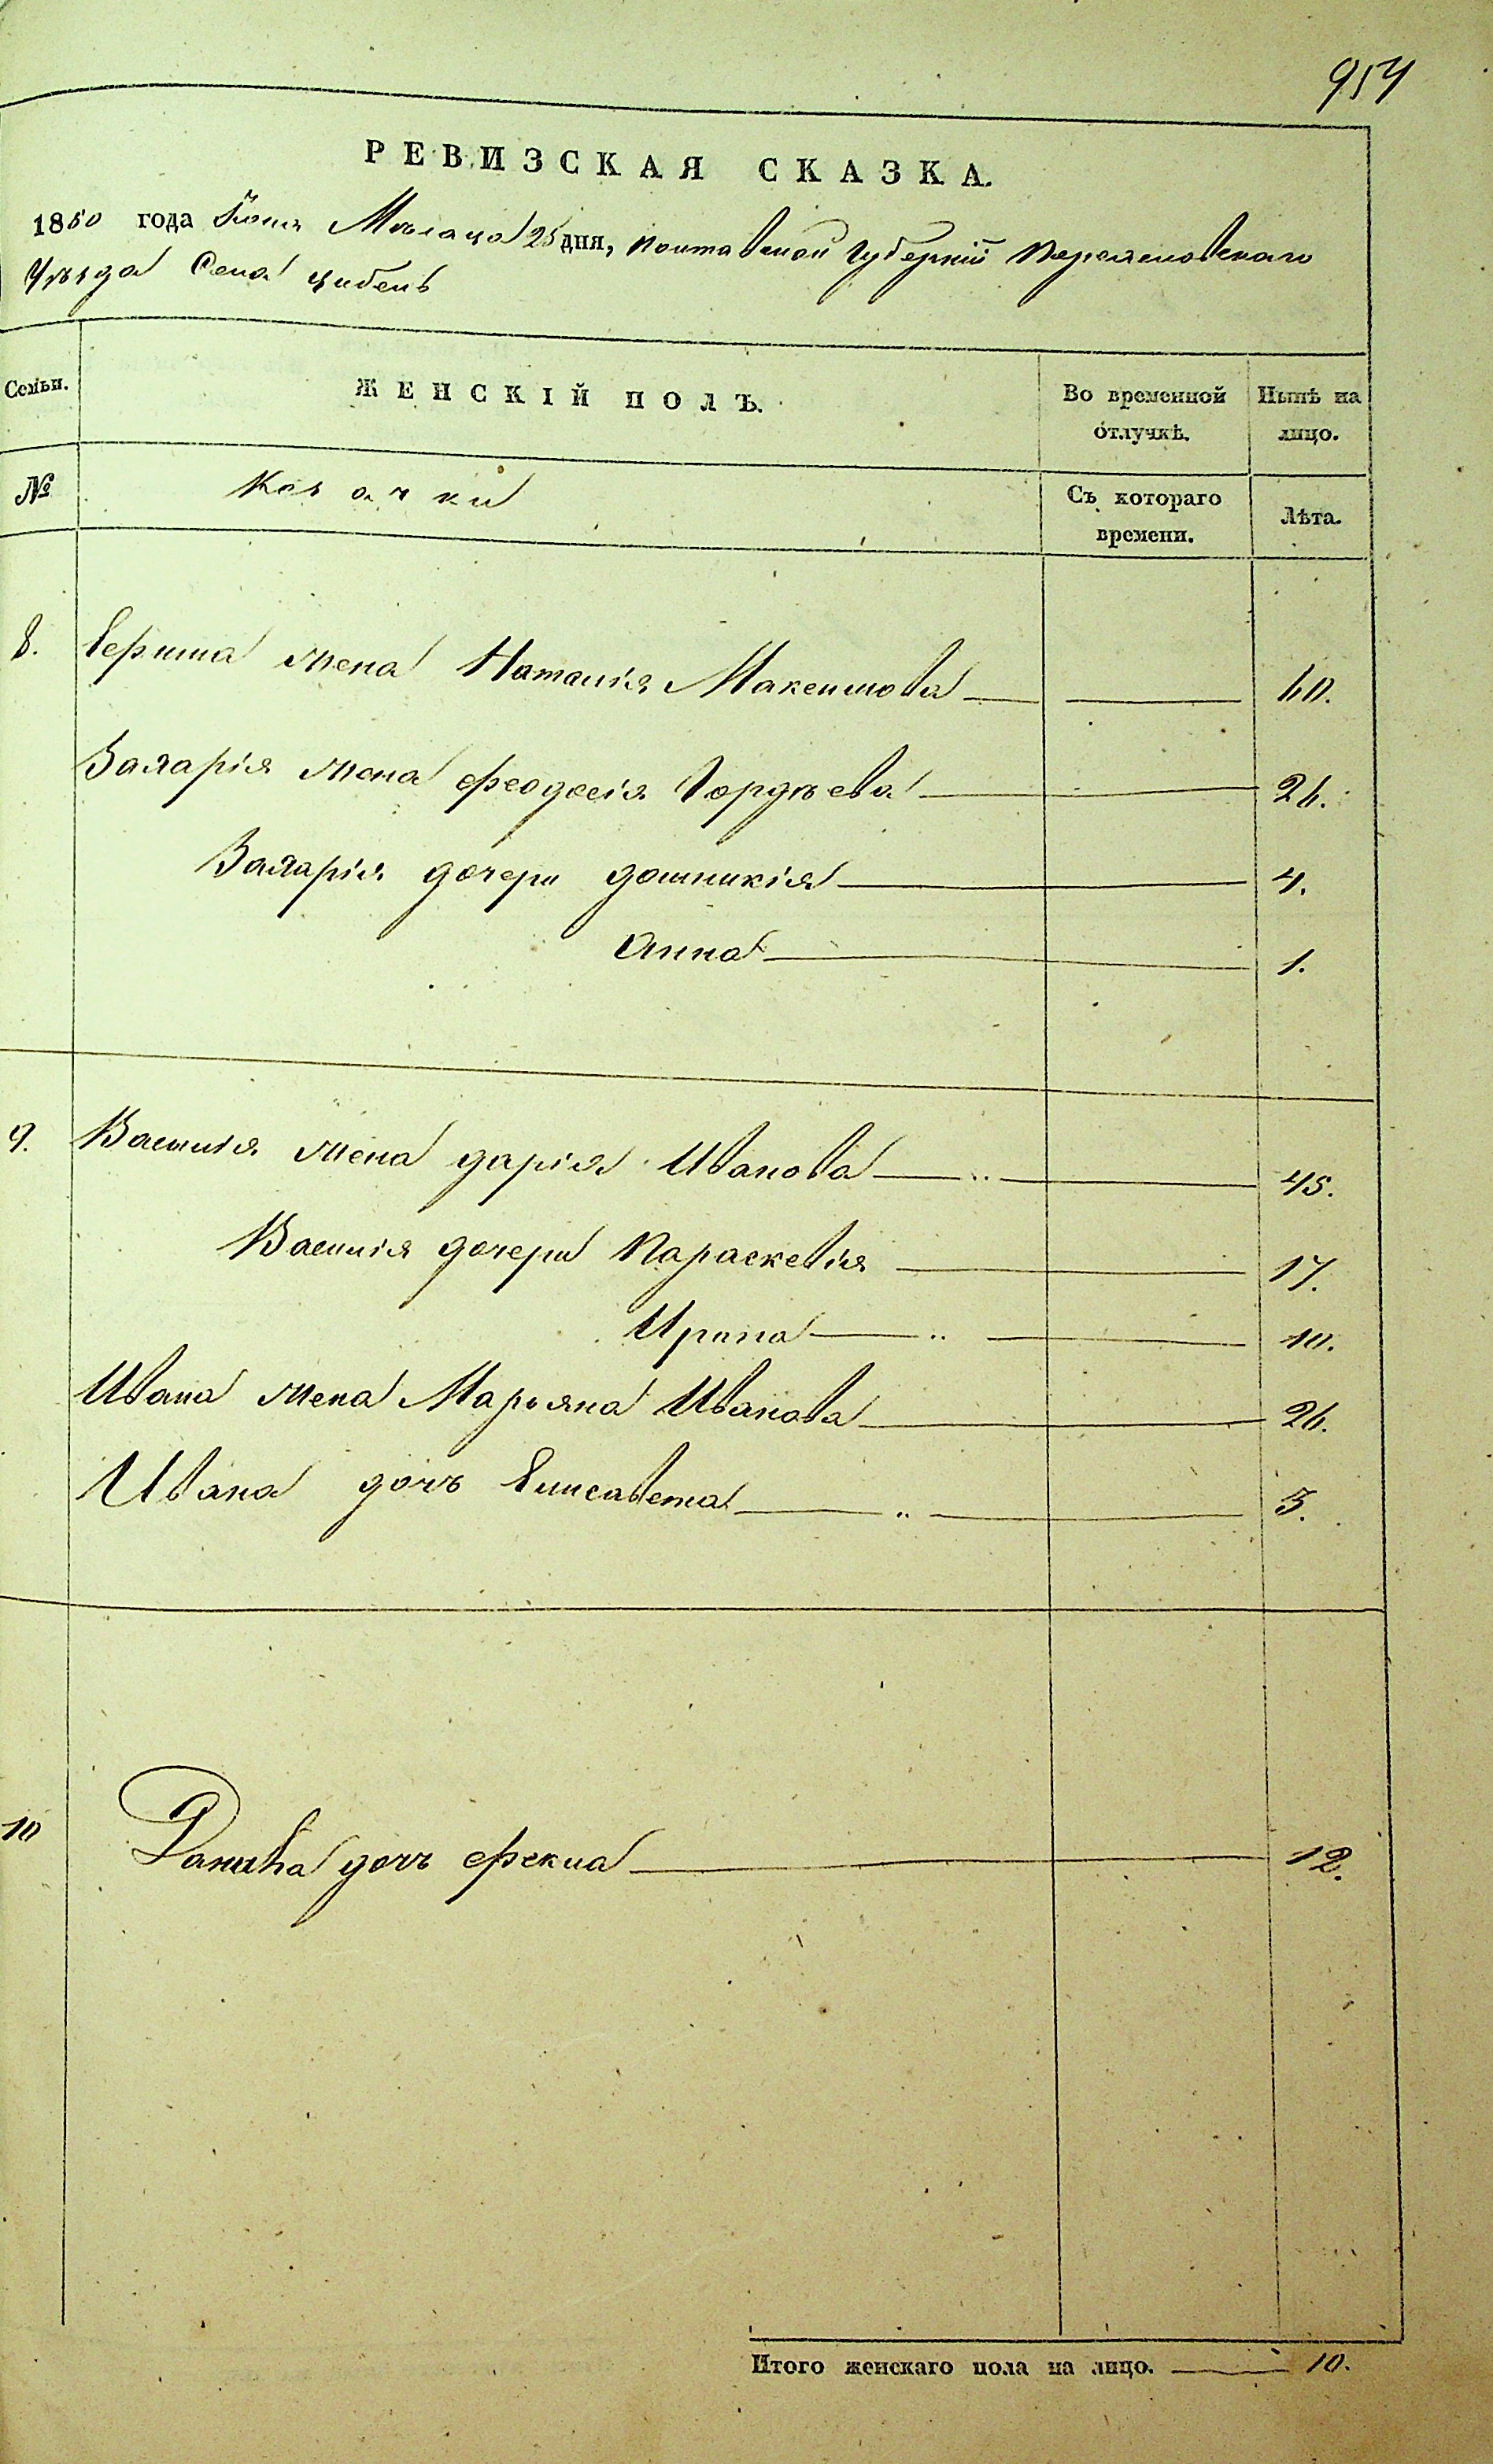 954
РЕВИЗСКАЯ СКАЗКА.
1850 года Іюня Мѣсяца 25 дня, Полтавской Губерніи Переяславскаго
Уѣзда Села Цибель
Семьи. ЖЕНСКІЙ ПОЛЪ. Во временной отлучкѣ. Нынѣ на лицо.
№ Козачки Съ котораго времени. Лѣта.
8. жена Наталія Максимова 60.
жена Феодосія Гордѣева 26.
дочери Домникія 4.
Анна 1.
9. Василія жена Дарія Иванова 45.
Василія дочери Параскевія 17.
Ирина 10.
Ивана жена Марьяна Иванова 26.
Ивана дочь Елисавета 3.
10 Данила дочь Фекла 12.
Итого женскаго пола на лицо. 10.